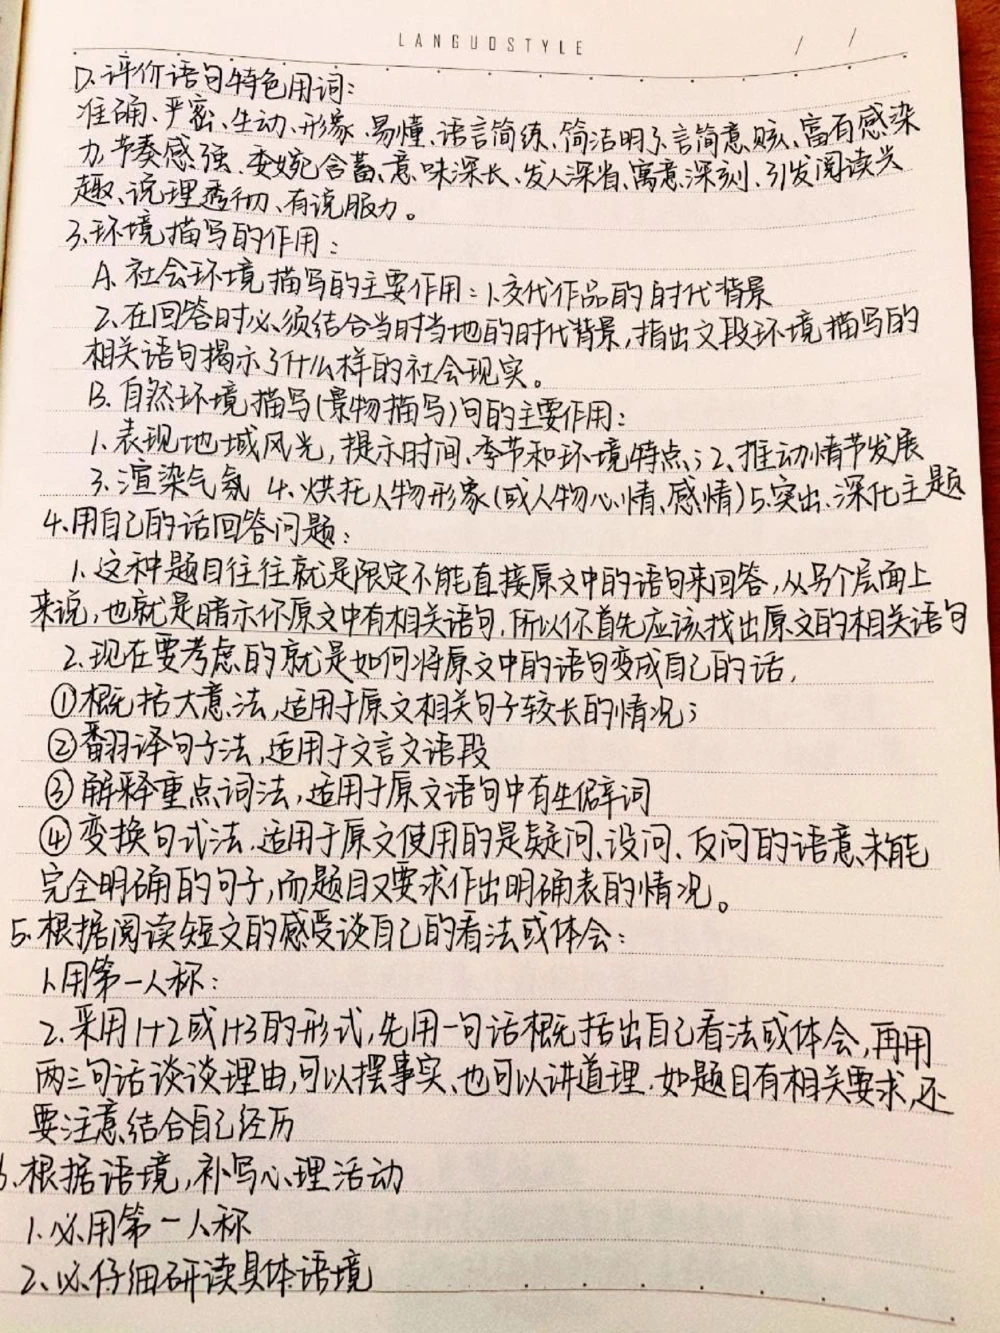 LANGUOSTYLE / /
D.评价语句特色用词：
准确、严密、生动、形象、易懂、语言简练、简洁明了、言简意赅、富有感染
力、节奏感强、委婉含蓄、意味深长、发人深省、寓意深刻、引发阅读兴
趣、说理透彻、有说服力。
3.环境描写的作用：
A.社会环境描写的主要作用：1.交代作品的时代背景
2.在回答时必须结合当时当地的时代背景，指出文段环境描写的
相关语句揭示了什么样的社会现实。
B.自然环境描写(景物描写)句的主要作用：
1.表现地域风光，提示时间、季节和环境特点；2、推动情节发展
3.渲染气氛 4.烘托人物形象(或人物心情、感情)5.突出、深化主题
4.用自己的话回答问题：
1.这种题目往往就是限定不能直接原文中的语句来回答，从另个层面上
来说，也就是暗示你原文中有相关语句，所以你首先应该找出原文的相关语句
2.现在要考虑的就是如何将原文中的语句变成自己的话，
①概括大意法，适用于原文相关句子较长的情况；
②翻译句子法，适用于文言文语段
③解释重点词法，适用于原文语句中有生僻词
④变换句式法，适用于原文使用的是疑问、设问、反问的语意未能
完全明确的句子，而题目又要求作出明确表的情况。
5.根据阅读短文的感受谈自己的看法或体会：
1.用第一人称：
2.采用1+2或1+3的形式，先用一句话概括出自己看法或体会，再用
两三句话谈谈理由，可以摆事实、也可以讲道理.如题目有相关要求，还
要注意结合自己经历
6.根据语境，补写心理活动
1.必用第一人称
2.必仔细研读具体语境